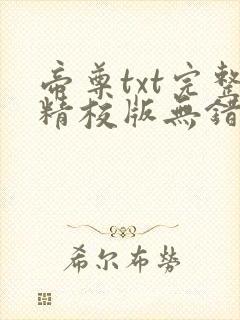 帝尊txt完整
精校版無錯
希尔布勞